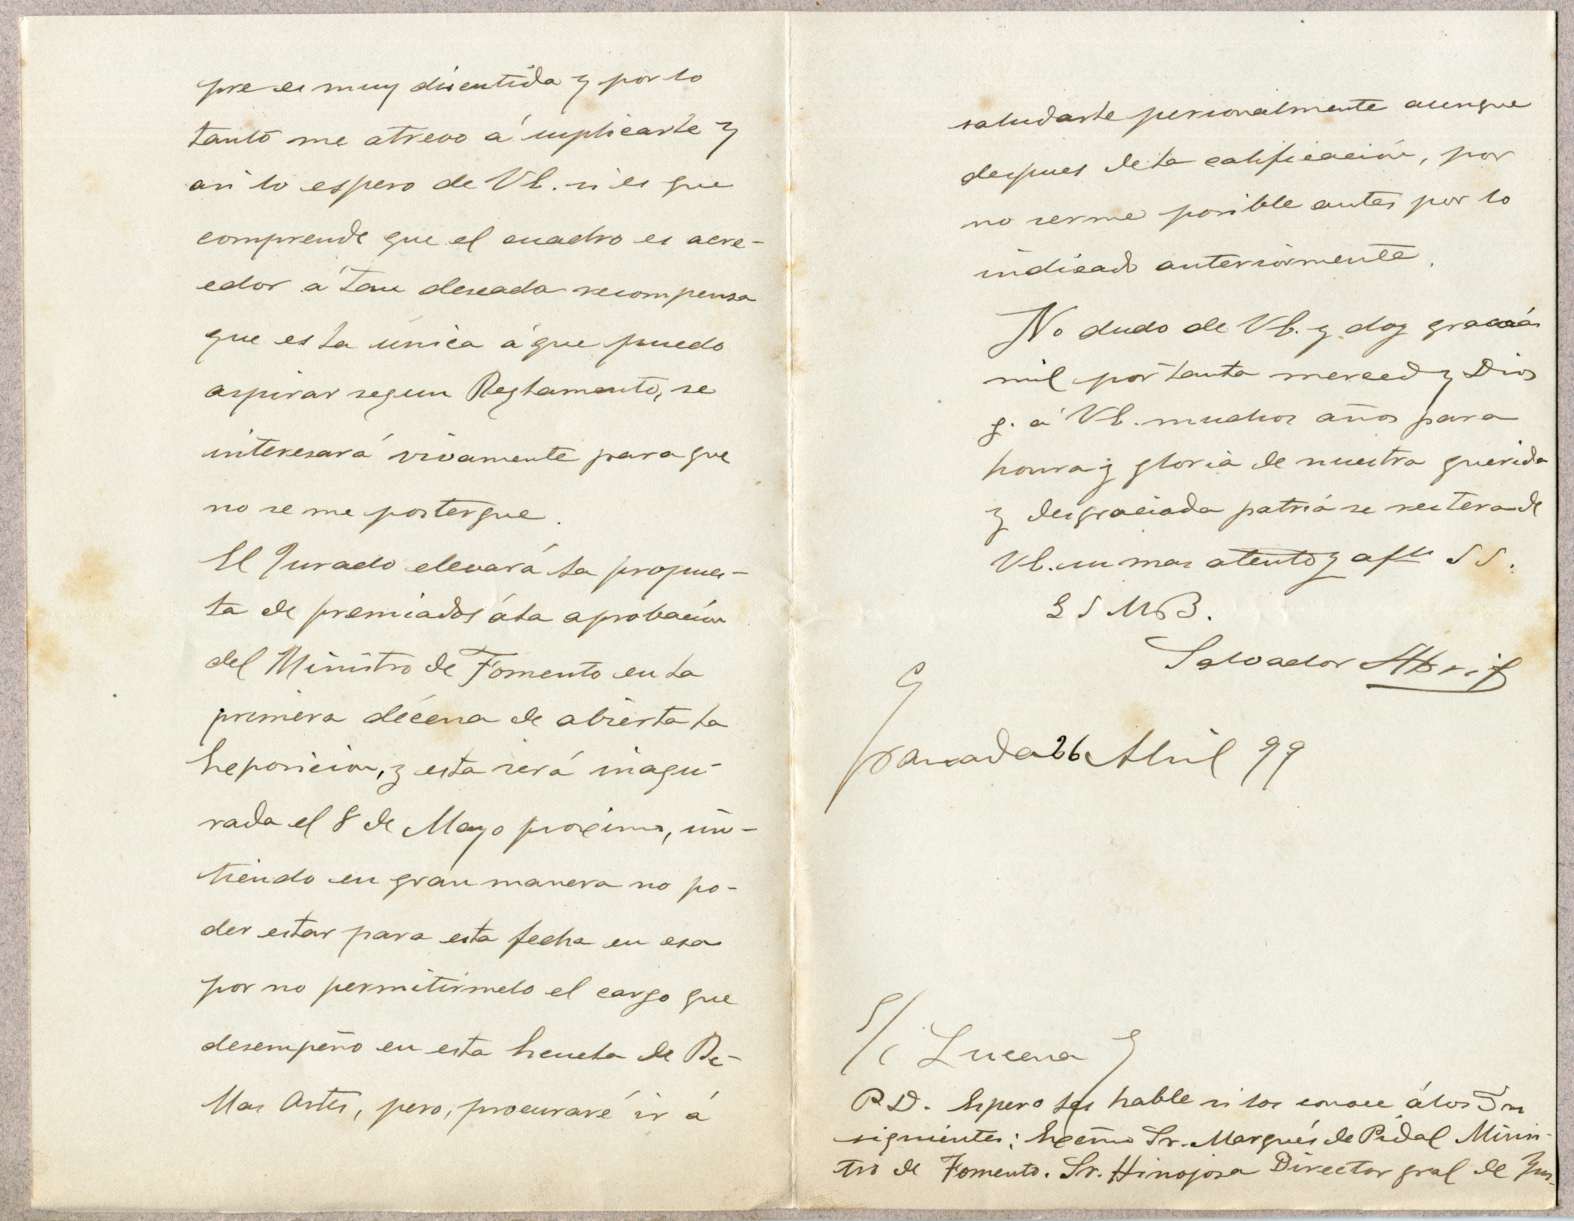 pre es muy discutida y por lo
tanto me atrevo á suplicarle y
asi lo espero de Vd. si es que
comprende que el cuadro es acre-
edor á tan deseada recompensa
que es la única á que puedo
aspirar segun Reglamento, se
interesará vivamente para que
no se me postergue.
El Jurado elevará la propues-
ta de premiados á la aprobación
del Ministro de Fomento en la
primera décena de abierta la
Exposicion, y esta será inagu-
rada el 8 de Mayo proximo, sin-
tiendo en gran manera no po-
der estar para esta fecha en esa
por no permitirmelo el cargo que
desempeño en esta Escuela de Be-
llas Artes, pero, procuraré ir á
saludarle personalmente aunque
despues de la calificación, por
no serme posible antes por lo
indicado anteriormente.
No dudo de Vd. y doy gracias
mil por tanta merced y Dios
g. á Vd. muchos años para
honra y gloria de nuestra querida
y desgraciada patria se reitera de
Vd. su mas atento y afto S S.
Q S M B.
Salvador Abril
Granada 26 Abril 99
S/c Lucena 9
P.D. Espero les hable si los conoce á los Srs
siguientes: Excmo Sr. Marqués de Pidal Minis-
tro de Fomento. Sr. Hinojosa Director gral de Ins-